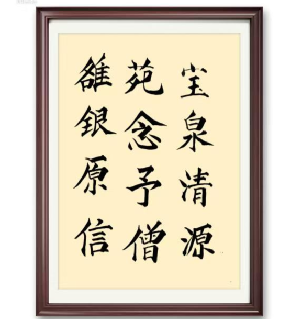 宝泉清源
苑念予僧
銀原信